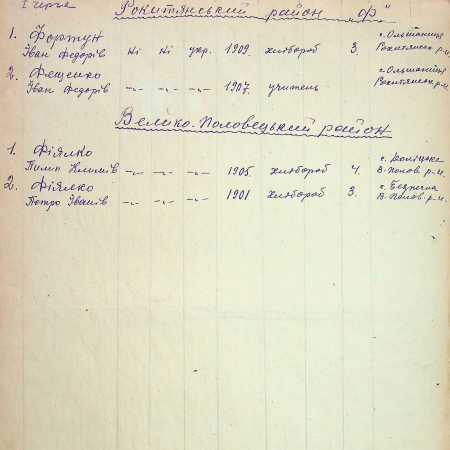 І черга
Рокитянський район "Ф"
1. Фортун
Іван Федорів ні ні укр. 1909. хлібороб 3. с. Ольшаниця
Рокитянськ. р-н.
2. Фещенко
Іван Федорів -"- -"- -"- 1907. учитель с. Ольшаниця
Рокитянськ р-н.
Велико-Половецький район
1. Фіялко
Пилип Климів -"- -"- -"- 1905. хлібороб 4. с.
В-Полов. р-н.
2. Фіялко
Петро Іванів -"- -"- -"- 1901 хлібороб 3. с.
В-Полов. р-н.